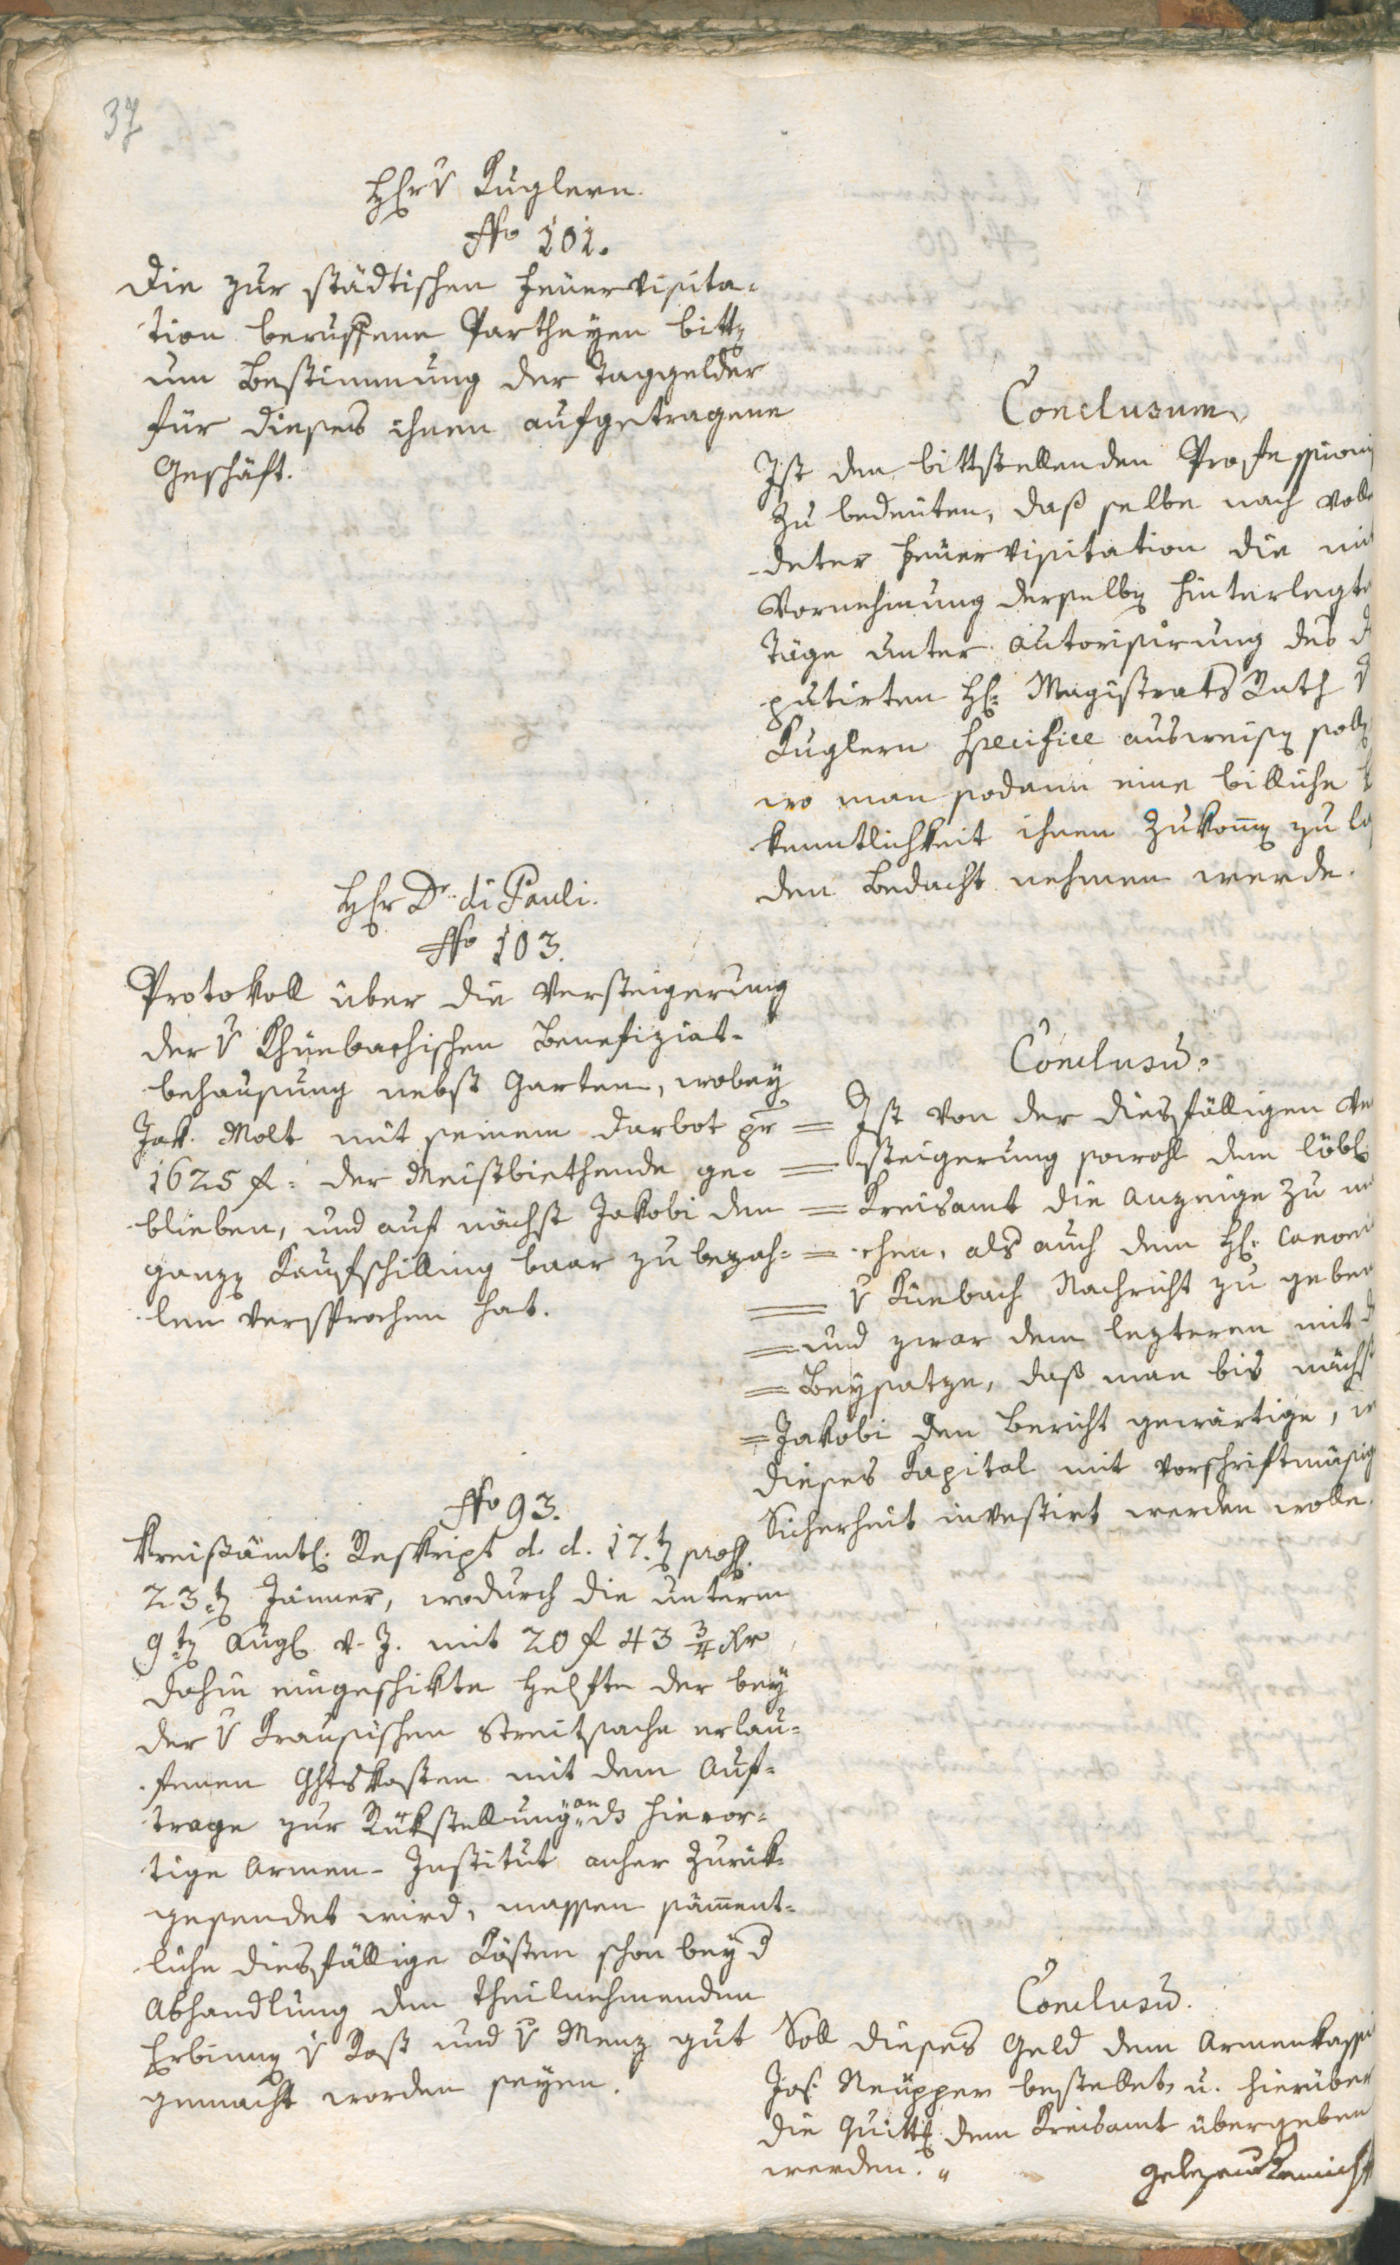 37
Hr v Kuglern.
No 101.
Die zur städtischen Feuervisita-
tion beruffene Partheyen bitten
um Bestimmung der Taggelder
für dieses ihnen aufgetragene
Geschäft.
Conclusum
Ist den bittstellenden Professioni
zu bedeuten, daß selbe nach voll
deter Feuervisitation die mit
Vornehmung derselben hinterlegte
Täge unter Autorisirung des D
putirten H: Magistrats Rath v
Kuglern specifice ausweisen solle
wo man sodann eine billiche
kenntlichkeit ihnen zukommen zu la
den Bedacht nehmen werde.
Hr Dr. di Pauli.
No 103.
Protokoll über die Versteigerung
der v Khuebachischen Benefiziat-
behausung nebst Garten, wobey
Jak. Molt mit seinem Darbot pr
1625 f: der Meistbiethende ge-
blieben, und auf nächst Jakobi den
ganzen Kaufschilling baar zu bezah-
len versprochen hat.
Conclusum.
Ist von der diesfälligen Ve
steigerung sowohl dem löbl
Kreisamt die Anzeige zu ma
chen, als auch dem H: Canoni
v Kuebach Nachricht zu geben
und zwar dem lezteren mit d
Beysatze, daß man bis nächst
Jakobi den Bericht gewärtige, w
dieses Kapital mit vorschriftmäsig
Sicherheit investirt werden wolle.
No 93.
Kreisämtl. Reskript d. d. 17.ten
23.ten Jänner, wodurch die unterm
9ten Aug v. J. mit 20 f 43 3/4 kr
dahin eingeschikte Helfte der bey
der v Krausischen Streitsache erlau-
fenen Ghtskosten mit dem Auf-
trage zur Rükstellung an ds hieror-
tige Armen-Institut anher zurük-
gesendet wird, massen sämment-
liche diesfällige Kösten schon bey d
Abhandlung den theilnehmenden
Erbinen v Rost und v Menz gut
gemacht worden seyen.
Conclusum.
Soll dieses Geld dem Armenkassi
Jos: Neupper bestellet, u. hierüber
die Quittg dem Kreisamt übergeben
werden.